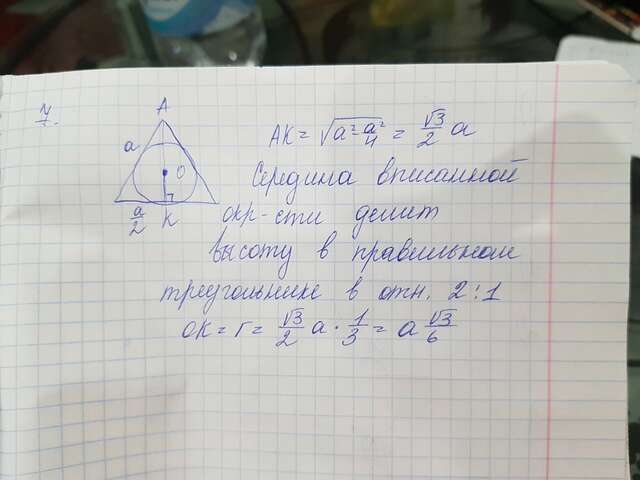 7.
A
a
O
a/2
K
AK = √(a² - a²/4) = √3/2 a
Середина вписанной
окр-сти делит
высоту в правильном
треугольнике в отн. 2:1
OK = r = √3/2 a · 1/3 = a √3/6